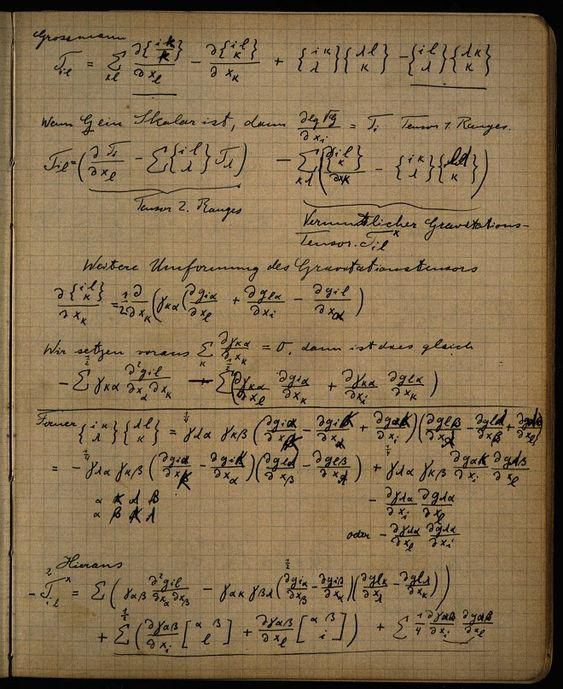 Grossmann
T_il = Σ_κl ∂{i κ / κ}/∂x_l − ∂{i l / κ}/∂x_κ + {i κ / λ}{λ l / κ} − {i l / λ}{λ κ / κ}
Wenn G ein Skalar ist, dann ∂lg√G/∂x_i = T_i Tensor 1. Ranges.
T_il = (∂T_i/∂x_l − Σ{i l / λ} T_λ) − Σ_κλ (∂{i l / κ}/∂x_κ − {i κ / λ}{l λ / κ})
Tensor 2. Ranges
Vermutlicher Gravitations-
Tensor. T_il^x
Weitere Umformung des Gravitationstensors
∂{i l / κ}/∂x_κ = 1/2 ∂/∂x_κ (γ_κα (∂g_iα/∂x_l + ∂g_lα/∂x_i − ∂g_il/∂x_α))
Wir setzen voraus Σ_κ ∂γ_κα/∂x_κ = 0, dann ist dies gleich
− 1/2 Σ γ_κα ∂²g_il/∂x_α∂x_κ + 1/2 Σ(∂γ_κα/∂x_l ∂g_iα/∂x_κ + ∂γ_κα/∂x_i ∂g_lα/∂x_κ)
Ferner {i κ / λ}{λ l / κ} = 1/4 γ_λα γ_κβ (∂g_iα/∂x_κ − ∂g_iκ/∂x_α + ∂g_ακ/∂x_i)(∂g_lβ/∂x_λ − ∂g_lλ/∂x_β + ∂g_λβ/∂x_l)
= − 1/4 γ_λα γ_κβ (∂g_iα/∂x_κ − ∂g_iκ/∂x_α)(∂g_lλ/∂x_β − ∂g_lβ/∂x_λ) + 1/4 γ_λα γ_κβ ∂g_ακ/∂x_i ∂g_λβ/∂x_l
α κ λ β
α β κ λ
− ∂γ_λα/∂x_i ∂g_λα/∂x_l
oder − ∂γ_λα/∂x_l ∂g_λα/∂x_i
Hieraus
− 2 T_il^x = Σ(γ_αβ ∂²g_il/∂x_α∂x_β − 1/2 γ_ακ γ_βλ (∂g_iα/∂x_β − ∂g_iβ/∂x_α)(∂g_lκ/∂x_λ − ∂g_lλ/∂x_κ))
+ 1/2 Σ(∂γ_αβ/∂x_i [α β / l] + ∂γ_αβ/∂x_l [α β / i]) + Σ 1/4 ∂γ_αβ/∂x_i ∂g_αβ/∂x_l